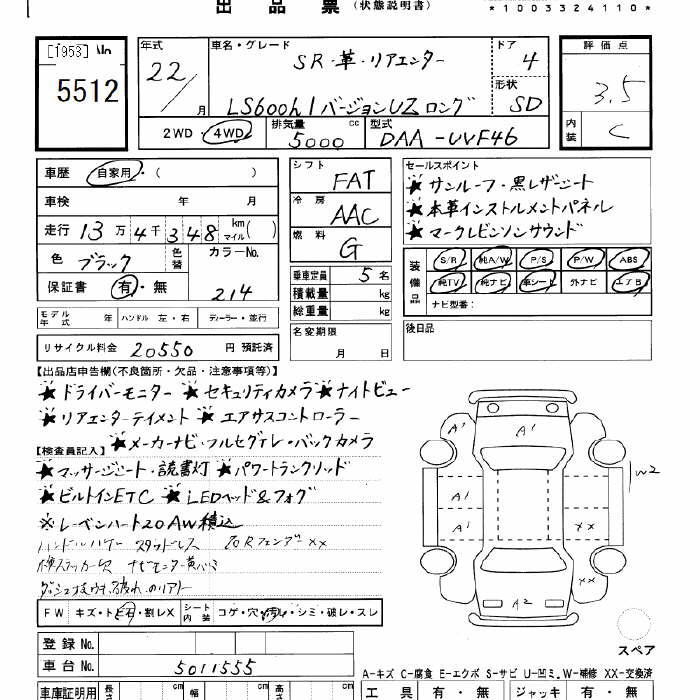 出 品 票 (状態説明書)
*1003324110*
[1953] No
5512
年式
22/
月
車名・グレード
SR・革・リアエンター
LS600hl バージョンUZ ロング
ドア
4
形状
SD
評価点
3.5
内装
C
2WD ・ 4WD
排気量
5000 cc
型式
DAA-UVF46
車歴 自家用・( )
車検 年 月
走行 13万4千348 km マイル( )
色 ブラック
色替
カラーNo.
214
保証書 有・無
シフト
FAT
冷房
AAC
燃料
G
セールスポイント
★サンルーフ・黒レザーシート
★本革インストルメントパネル
★マークレビンソンサウンド
乗車定員 5 名
積載量 kg
総重量 kg
装備品
S/R 純A/W P/S P/W ABS
純TV 純ナビ 革シート 外ナビ エアB
ナビ型番:
モデル年式 年 ハンドル 左・右 ディーラー・並行
名変期限
月 日
後日品
リサイクル料金 20550 円 預託済
【出品店申告欄(不良箇所・欠品・注意事項等)】
★ドライバーモニター ★セキュリティカメラ ★ナイトビュー
★リアエンターテイメント ★エアサスコントローラー
★メーカーナビ・フルセグテレ・バックカメラ
【検査員記入】
★マッサージシート・読書灯 ★パワートランクリッド
★ビルトインETC ★LEDヘッド&フォグ
※レーベンハート20AW積込
スタッドレス
FW キズ・ト・石・割レX
シート内装 コゲ・穴・汚レ・シミ・破レ・スレ
登録No.
車台No. 5011555
A1
A1
A1
A1
XX
XX
A2
W2
スペア
A-キズ C-腐食 E-エクボ S-サビ U-凹ミ W-補修 XX-交換済
車庫証明用 長さ cm 幅 cm cm
工具 有・無 ジャッキ 有・無